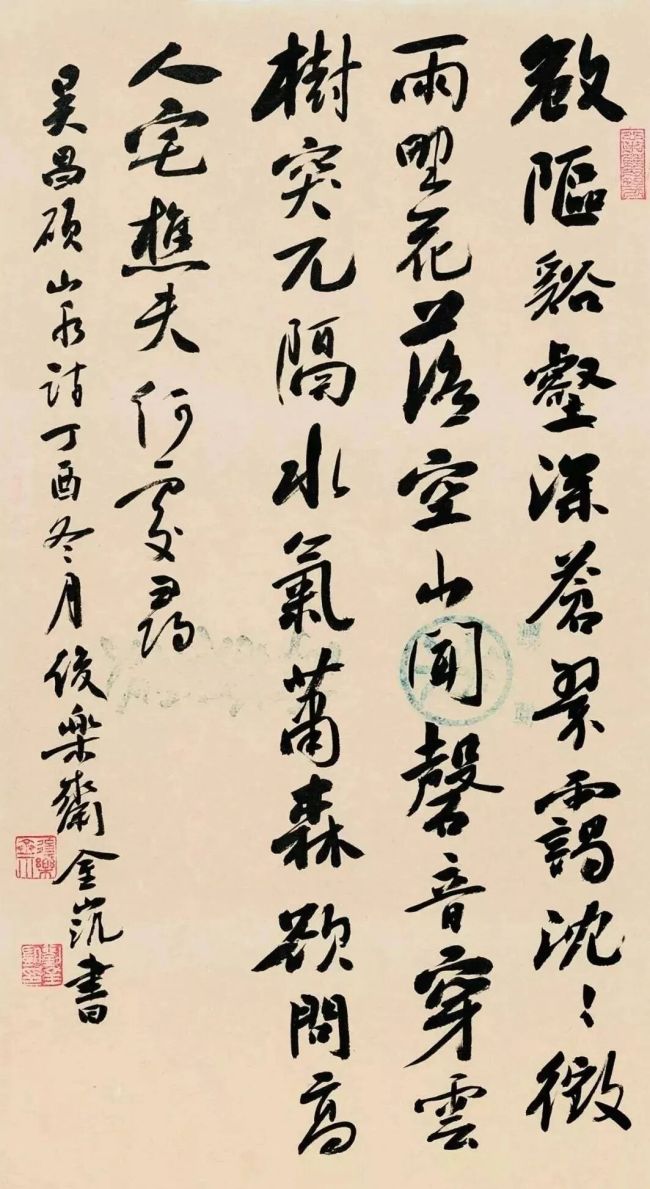 䧢谿壑深蒼翠靄沈〻微
雨野花落空山聞磬音穿雲
樹突兀隔水氣蕭森欲問高
人宅樵夫何處尋
吴昌碩山泉詩丁酉冬月俊樂齋金書